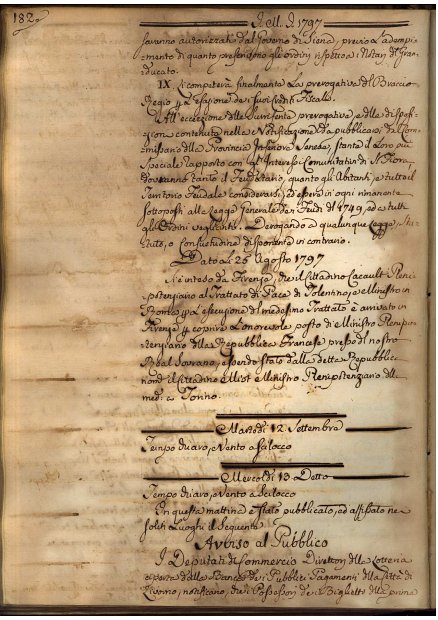 182.
A. M. D. 1797
saranno autorizzati dal Governo di Siena, previo l'adempi-
mento di quanto prescrivono gli ordini rispetto a i Notari del Gran-
ducato.
IX. Li competerà finalmente la prerogativa del Braccio
Regio p la esazione de i suoi crediti Fiscali.
All'eccezione delle surriferite prerogative, e delle disposi-
zioni contenute nella Notificazione da pubblicarsi dal Com-
missario della Provincia Inferiore Senese, stante il loro più
speciale rapporto con gl'Interessi Comunitativi di S. Fiora,
dovranno tanto il Feudatario, quanto gli Abitanti, e tutto il
Territorio Feudale considerarsi, ed essere in ogni rimanente
sottoposti alla Legge Generale de i Feudi del 1749, ed a tutti
gli Ordini veglianti. Derogando a qualunque Legge, Sta-
tuto, o Consuetudine disponente in contrario.
Dato Li 25 Agosto 1797
Si è inteso da Firenze, che il Cittadino Cacault Pleni-
potenziario al Trattato di Pace di Tolentino, e Ministro in
Roma p la esecuzione del medesimo Trattato è arrivato in
Firenze p coprire l'onorevole posto di Ministro Plenipo-
tenziario della Repubblica Francese presso del nostro
Real Sovrano, essendo stato dalla detta Repubblica
nom: il Cittadino Miot e Ministro Plenipotenziario della
med: a Torino.
Martedì 12 Settembre
Tempo chiaro, e Vento a Scilocco
Mercoldì 13 Detto
Tempo chiaro, e Vento a Scilocco
In questa mattina è stato pubblicato, ed affissato ne
soliti Luoghi il seguente
Avviso al Pubblico
I Deputati di Commercio Direttori della Lotteria
eretta della Banca de i Pubblici Pagamenti della Città di
Livorno, notificano, che i Possessori de i Biglietti della prima